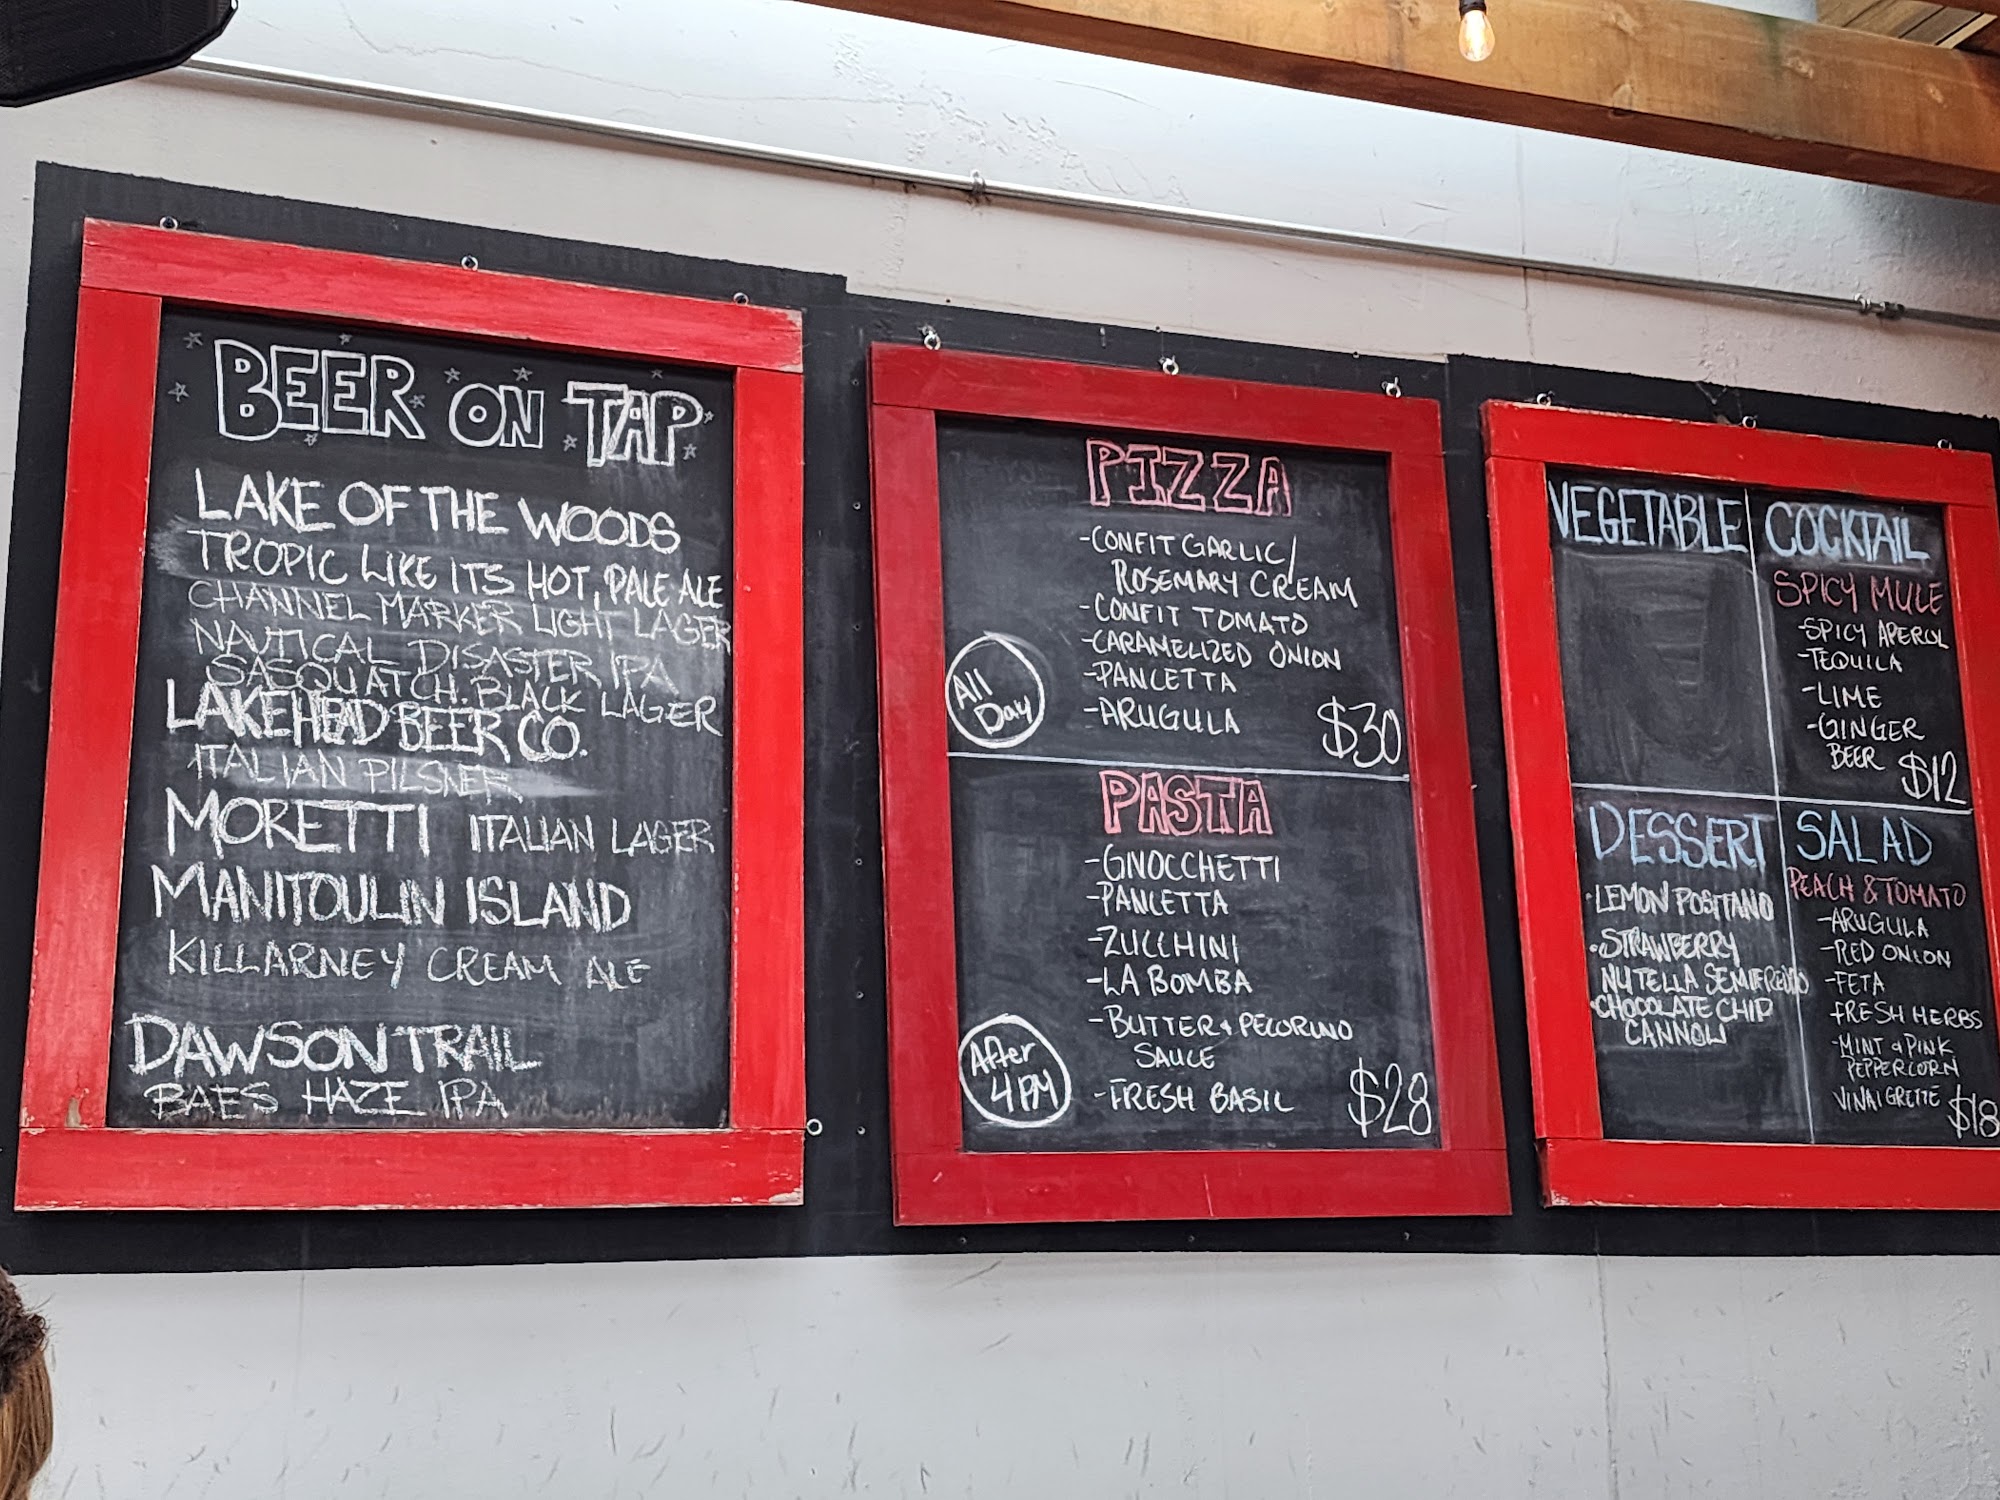 BEER ON TAP
LAKE OF THE WOODS
TROPIC LIKE ITS HOT, PALE ALE
CHANNEL MARKER LIGHT LAGER
NAUTICAL DISASTER IPA
SASQUATCH. BLACK LAGER
LAKEHEAD BEER CO.
ITALIAN PILSNER
MORETTI ITALIAN LAGER
MANITOULIN ISLAND
KILLARNEY CREAM ALE
DAWSON TRAIL
BAES HAZE IPA
PIZZA
-CONFIT GARLIC/
ROSEMARY CREAM
-CONFIT TOMATO
-CARAMELIZED ONION
-PANCETTA
-ARUGULA
All
Day
$30
PASTA
-GNOCCHETTI
-PANCETTA
-ZUCCHINI
-LA BOMBA
-BUTTER & PECORINO
SAUCE
-FRESH BASIL
After
4PM
$28
VEGETABLE
COCKTAIL
SPICY MULE
-SPICY APEROL
-TEQUILA
-LIME
-GINGER
BEER
$12
DESSERT
·LEMON POSITANO
·STRAWBERRY
NUTELLA SEMIFREDDO
·CHOCOLATE CHIP
CANNOLI
SALAD
PEACH & TOMATO
-ARUGULA
-RED ONION
-FETA
-FRESH HERBS
-MINT & PINK
PEPPERCORN
VINAIGRETTE
$18